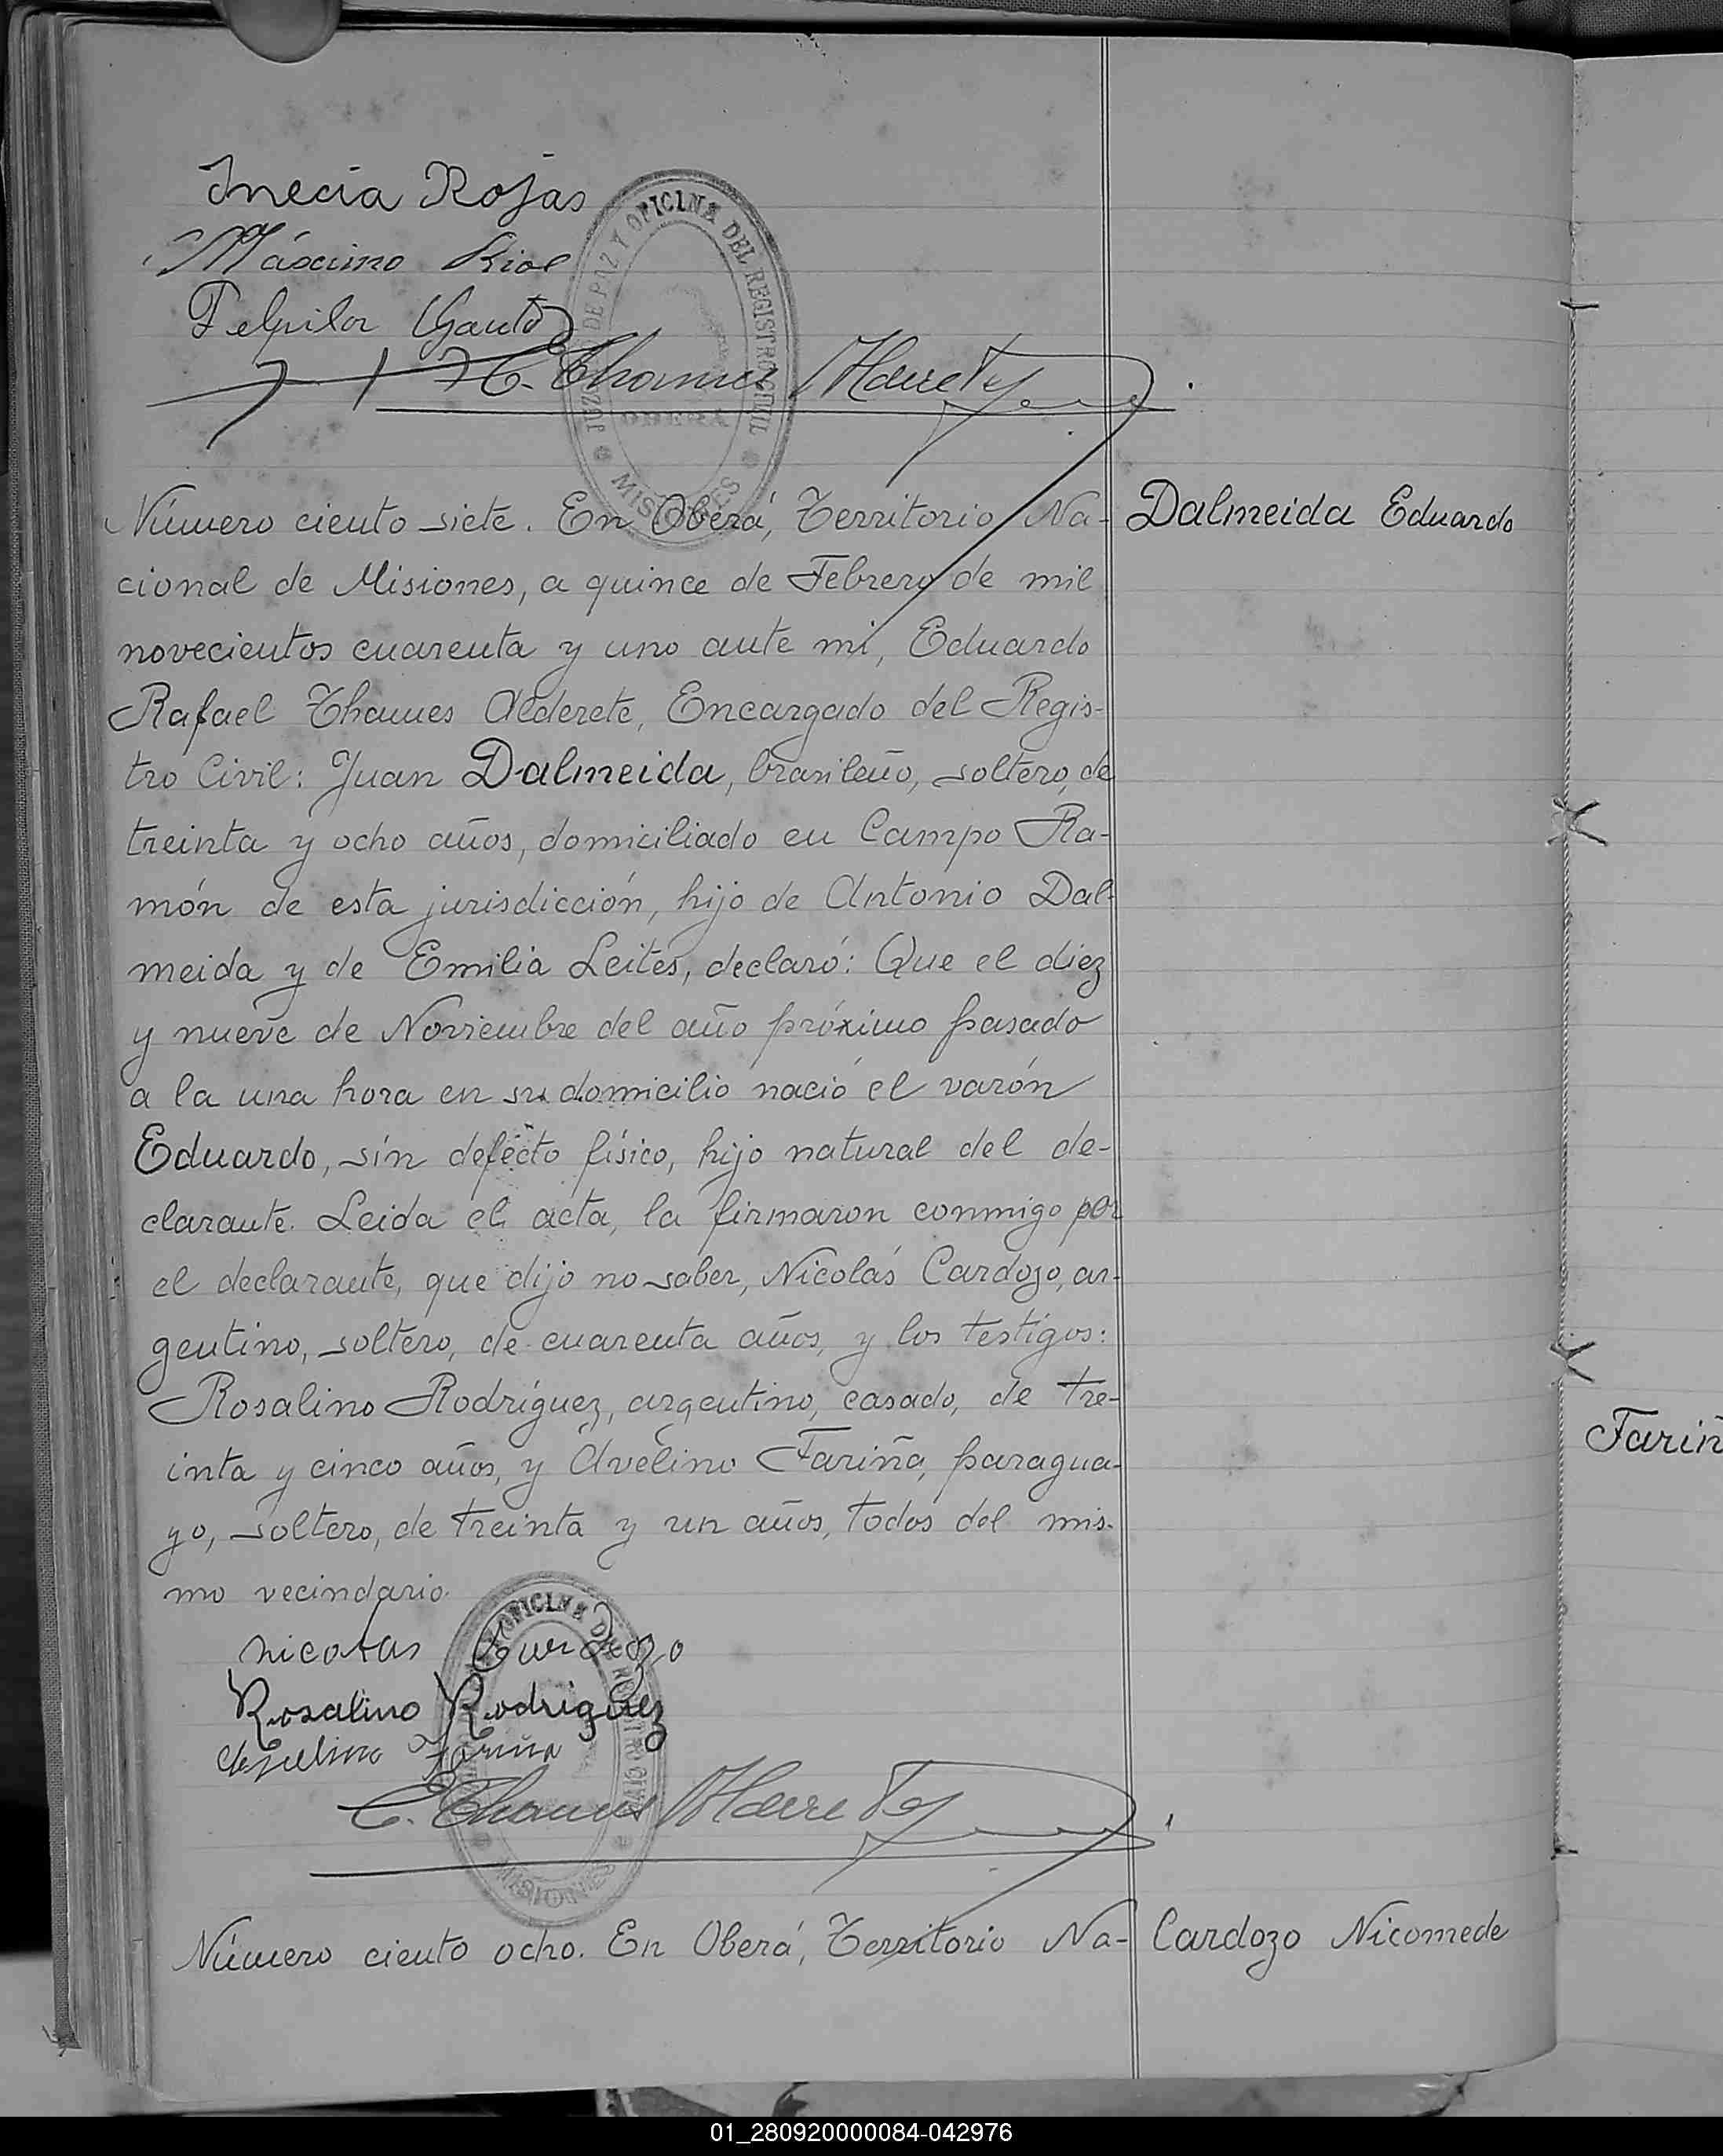 Inecia Rojas
Máximo Rios
Gauto
JUZGADO DE PAZ Y OFICINA DEL REGISTRO CIVIL
OBERÁ
MISIONES
E. Thames Alderete
Número ciento siete. En Oberá, Territorio Na-
Dalmeida Eduardo
cional de Misiones, a quince de Febrero de mil
novecientos cuarenta y uno ante mi, Eduardo
Rafael Thames Alderete, Encargado del Regis-
tro Civil: Juan Dalmeida, brasileño, soltero, de
treinta y ocho años, domiciliado en Campo Ra-
món de esta jurisdicción, hijo de Antonio Dal-
meida y de Emilia Leites, declaró: Que el diez
y nueve de Noviembre del año próximo pasado
a la una hora en su domicilio nació el varón
Eduardo, sin defecto físico, hijo natural del de-
clarante. Leida el acta, la firmaron conmigo por
el declarante, que dijo no saber, Nicolás Cardozo, ar-
gentino, soltero, de cuarenta años, y los testigos:
Rosalino Rodríguez, argentino, casado, de tre-
inta y cinco años, y Avelino Fariña, paragua-
yo, soltero, de treinta y un años, todos del mis-
mo vecindario.
nicolas Cardozo
Rosalino Rodriguez
Avelino Fariña
OFICINA DEL REGISTRO CIVIL
MISIONES
E. Thames Alderete
Número ciento ocho. En Oberá, Territorio Na-
Cardozo Nicomede
Fariñ
01_280920000084-042976